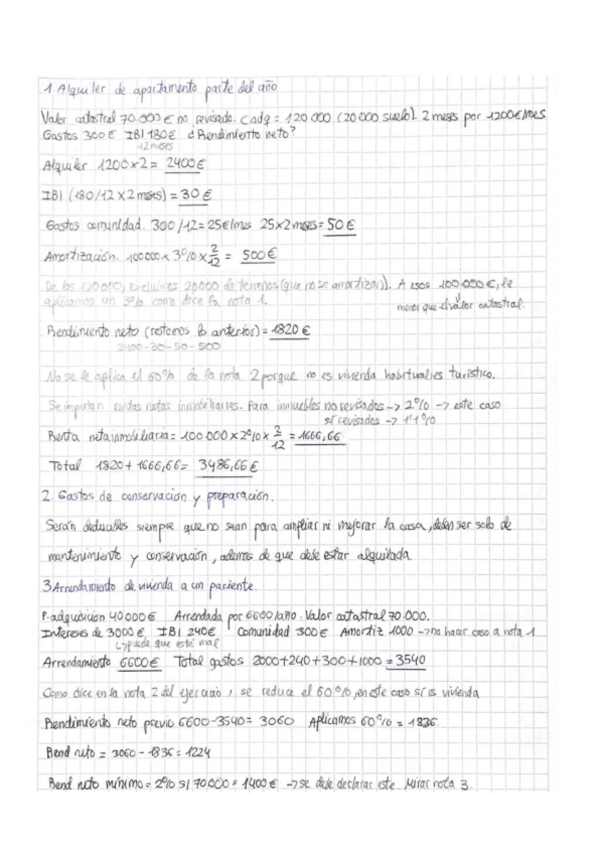 1. Alquiler de apartamento parte del año
Valor catastral 70.000 € no revisado. Cadq = 120 000 (20 000 suelo). 2 meses por 1200€/mes
Gastos 300 € IBI 180€ ¿Rendimiento neto?
12 meses
Alquiler 1200x2 = 2400€
IBI (180/12 x 2 meses) = 30 €
Gastos comunidad. 300/12 = 25€/mes 25x2 meses = 50 €
Amortización. 100000 x 3% x 2/12 = 500€
De los 120000, excluimos 20000 de terrenos (que no se amortizan). A esos 100.000 €, le
aplicamos un 3% como dice la nota 1. mayor que el valor catastral.
Rendimiento neto (restamos lo anterior) = 1820 €
2400-30-50-500
No se le aplica el 60% de la nota 2 porque no es vivienda habitual, es turístico.
Se imputan rentas inmobiliarias. Para inmuebles no revisados -> 2% -> este caso
sí revisados -> 1'1%
Renta neta inmobiliaria = 100.000 x 2% x 2/12 = 1666,66
Total 1820 + 1666,66 = 3486,66 €
2. Gastos de conservación y preparación.
Serán deducibles siempre que no sean para ampliar ni mejorar la casa, deben ser solo de
mantenimiento y conservación, además de que debe estar alquilada
3 Arrendamiento de vivienda a un pariente.
P. adquisición 40000 € Arrendada por 6600/año. Valor catastral 70.000.
Intereses de 3000 €, IBI 240€ Comunidad 300€ Amortiz 1000 -> no hacer caso a nota 1
puede que esté mal
Arrendamiento 6600€ Total gastos 2000+240+300+1000 = 3540
Como dice en la nota 2 del ejercicio, se reduce el 60%, en este caso sí es vivienda
Rendimiento neto previo 6600-3540 = 3060 Aplicamos 60% = 1836
Rend neto = 3060 - 1836 = 1224
Rend neto mínimo = 2% s/ 70000 = 1400 € -> se debe declarar este. Mirar nota 3.